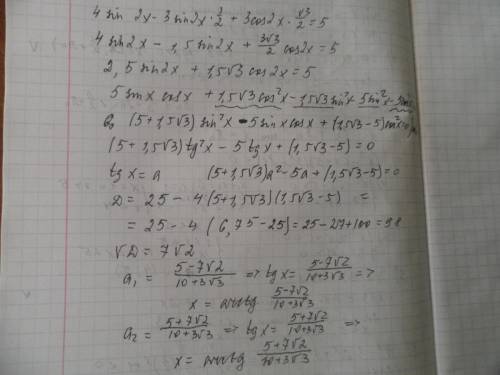 4 sin 2x - 3 sin2x · 1/2 + 3cos2x · √3/2 = 5
4 sin2x - 1,5 sin2x + 3√3/2 cos2x = 5
2,5 sin2x + 1,5√3 cos2x = 5
5 sinx cosx + 1,5√3 cos²x - 1,5√3 sin²x - 5sin²x - 5cos²x
(5 + 1,5√3) sin²x - 5 sinx cosx + (1,5√3 - 5)cos²x = 0
(5 + 1,5√3) tg²x - 5 tgx + (1,5√3 - 5) = 0
tg x = a (5 + 1,5√3)a² - 5a + (1,5√3 - 5) = 0
D = 25 - 4(5 + 1,5√3)(1,5√3 - 5) =
= 25 - 4 (6,75 - 25) = 25 - 27 + 100 = 98
√D = 7√2
a₁ = 5-7√2/10+3√3 => tg x = 5-7√2/10+3√3 =>
x = arctg 5-7√2/10+3√3
a₂ = 5+7√2/10+3√3 => tg x = 5+7√2/10+3√3 =>
x = arctg 5+7√2/10+3√3